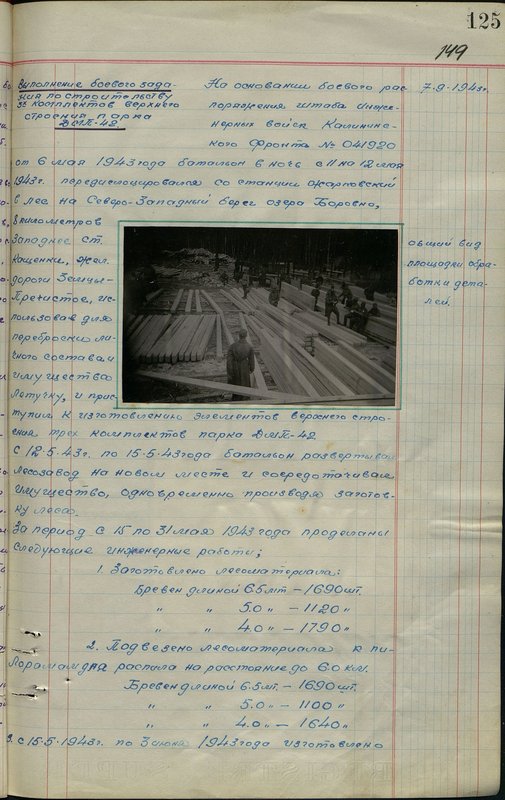 125
149
Выполнение боевого зада-
ния по строительству
3х комплектов верхнего
строения парка
ДМП-42
На основании боевого рас
поряжения штаба инже-
нерных войск Калининс-
кого Фронта № 041920
7.9.1943г.
от 6 мая 1943 года батальон в ночь с 11 на 12 мая
1943г. передислоцировался со станции Жарковский
в лес на Северо-Западный берег озера Боровно,
километров
Западнее ст.
Кащенки, жел.
дороги Земцы-
Пречистое, ис-
пользовав для
переброски ли-
чного состава и
имущества
летучку, и прис-
тупил к изготовлению элементов верхнего стро-
ения трех комплектов парка ДМП-42
общий вид
площадки обра-
ботки дета-
лей.
С 12.5.43г. по 15.5.43 года батальон развертывал
лесозавод на новом месте и сосредотачивал
имущество, одновременно производя заготов-
ку леса.
За период с 15 по 31 мая 1943 года проделаны
следующие инженерные работы;
1. Заготовлено лесоматериала:
Бревен длиной 6.5 мт - 1690 шт.
" " 5.0 " - 1120 "
" " 4.0 " - 1790 "
2. Подвезено лесоматериала к пи-
лорамам для распила на расстояние до 6.0 км.
Бревен длиной 6.5 мт. - 1690 шт.
" " 5.0 " - 1100 "
" " 4.0 " - 1640 "
3. с 15.5.1943г. по 3 июня 1943 года изготовлено